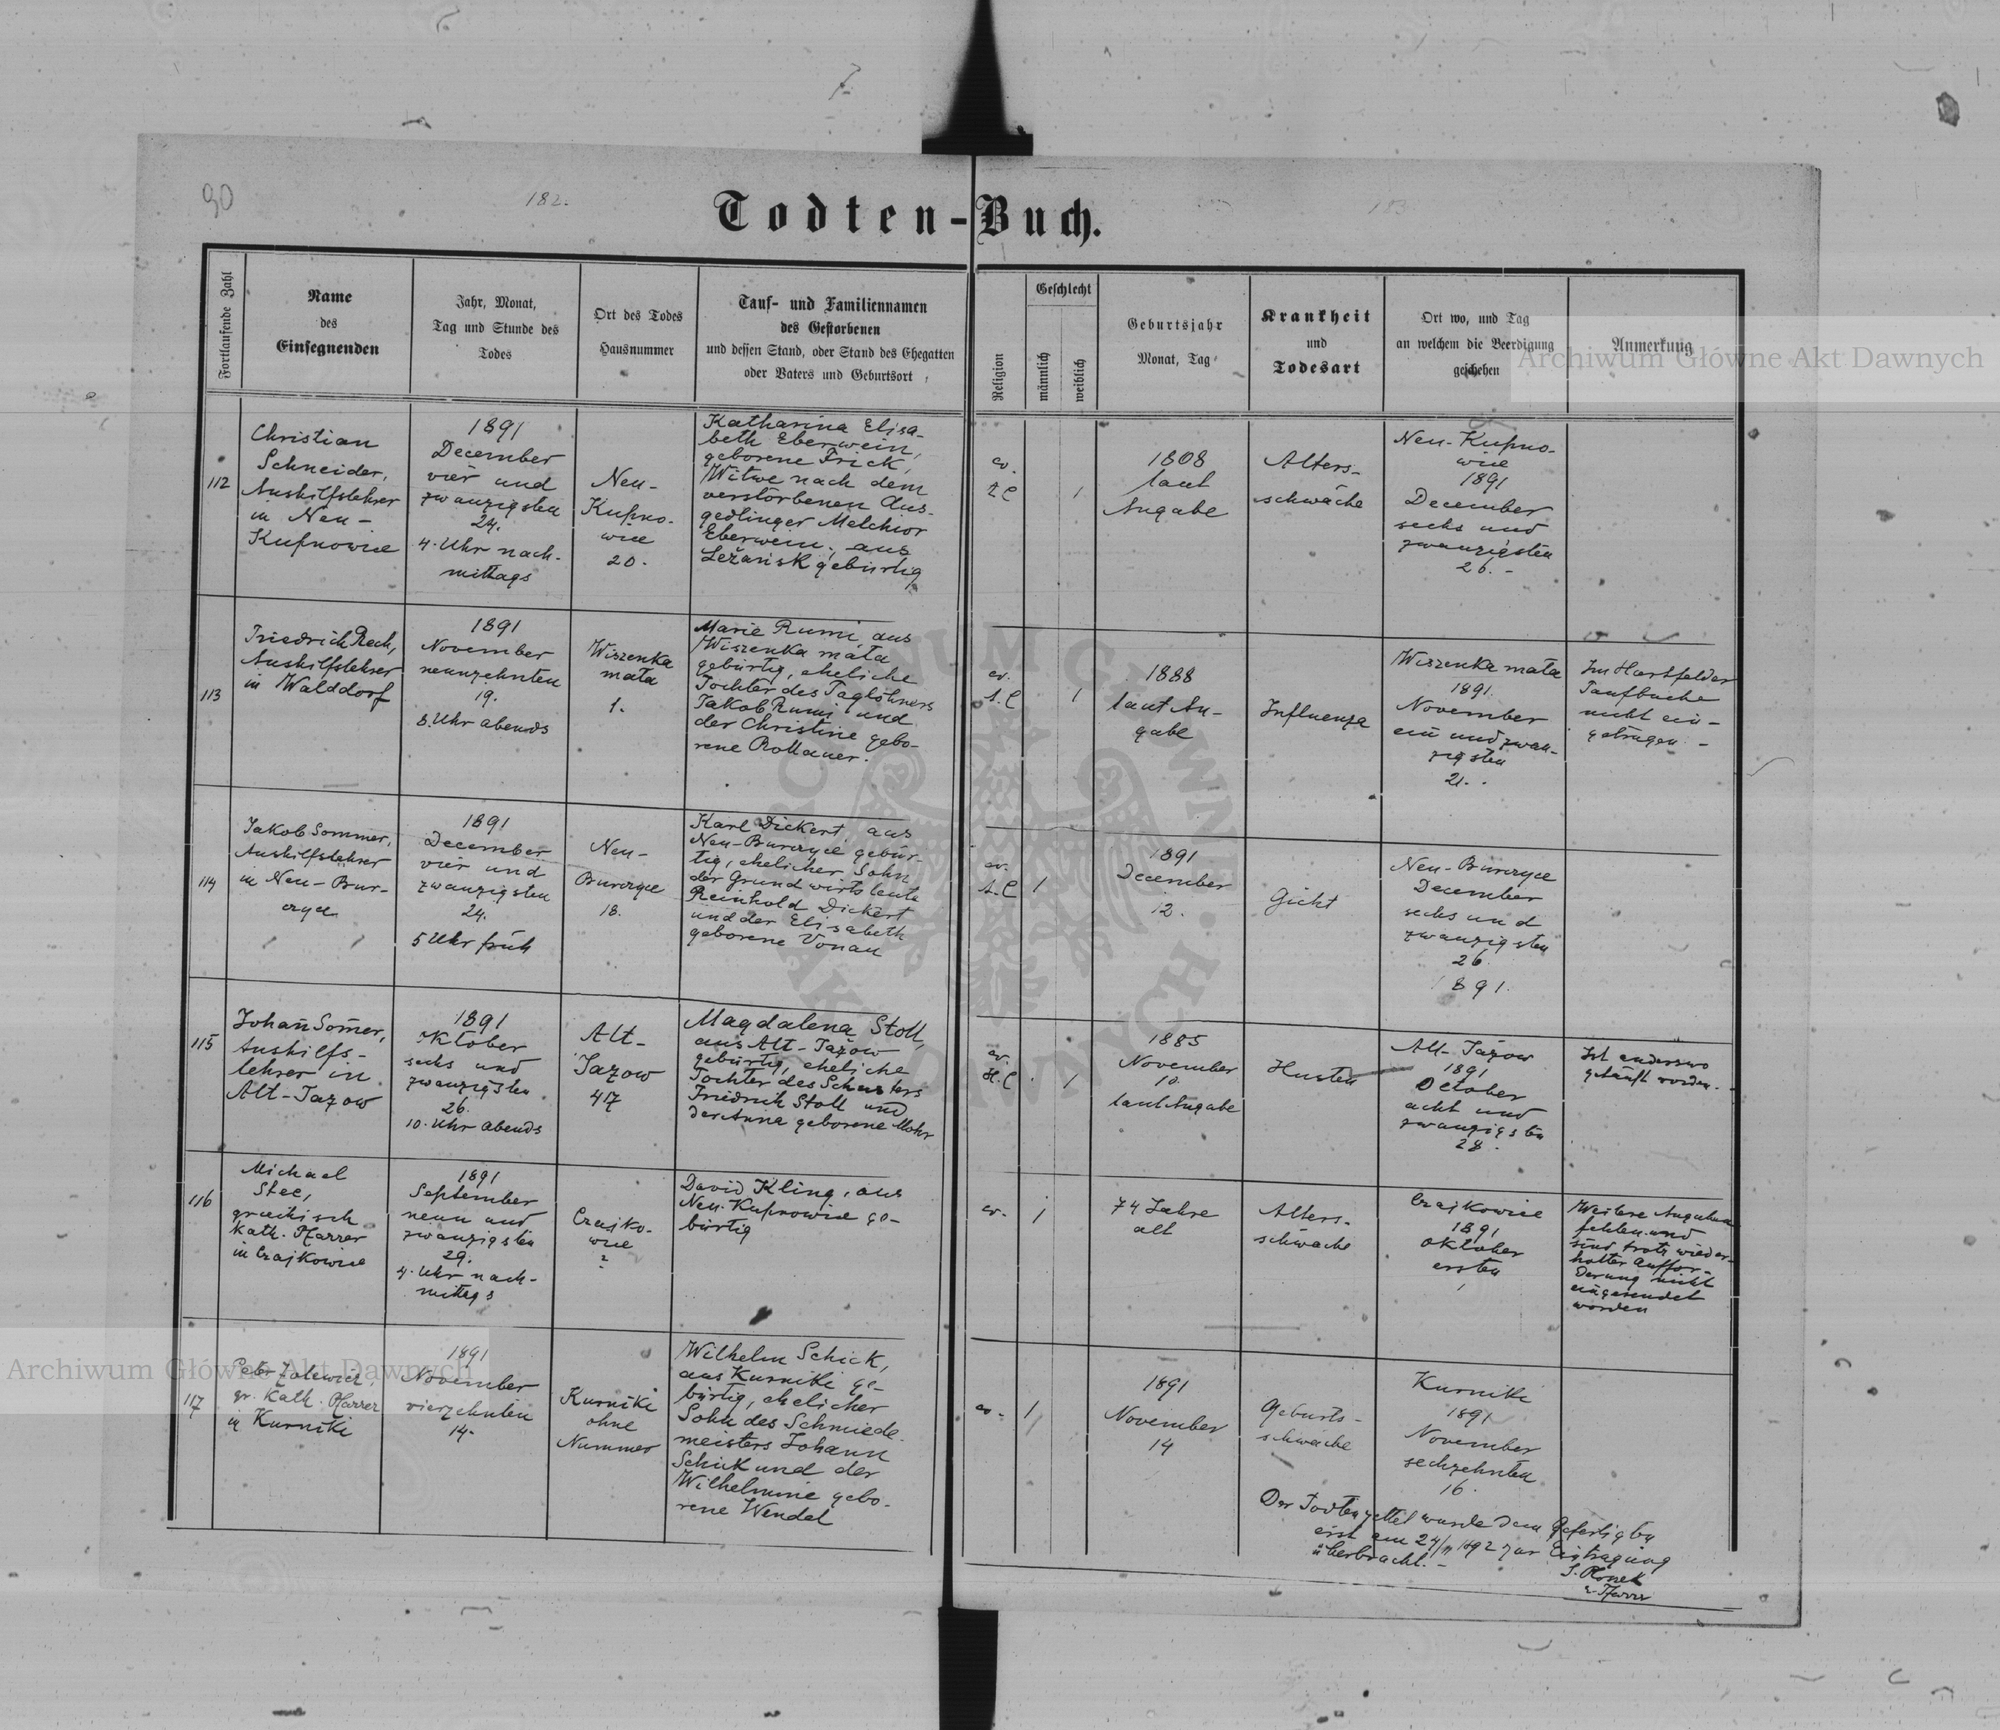 90
182.
183
Todten-Buch.
Fortlaufende Zahl
Name
des
Einsegnenden
Jahr, Monat,
Tag und Stunde des
Todes
Ort des Todes
Hausnummer
Tauf- und Familiennamen
des Gestorbenen
und dessen Stand, oder Stand des Ehegatten
oder Vaters und Geburtsort
Religion
Geschlecht
männlich
weiblich
Geburtsjahr
Monat, Tag
Krankheit
und
Todesart
Ort wo, und Tag
an welchem die Beerdigung
geschehen
Anmerkung
112
Christian
Schneider,
Aushilfslehrer
in Neu-
Kupnowice
1891
December
vier und
zwanzigsten
24.
4. Uhr nach-
mittags
Neu-
Kupno-
wice
20.
Katharina Elisa-
beth Eberwein,
geborene Frick,
Witwe nach dem
verstorbenen Aus-
gedlinger Melchior
Eberwein, aus
Ležańsk gebürtig
ev.
H.C
1
1808
laut
Angabe
Alters-
schwäche
Neu-Kupno-
wice
1891
December
sechs und
zwanzigsten
26.-
113
Friedrich Rech,
Aushilfslehrer
in Walddorf
1891
November
neunzehnten
19.
8. Uhr abends
Wiszenka
mała
1.
Marie Rumi, aus
Wiszenka mała
gebürtig, eheliche
Tochter des Taglöhners
Jakob Rumi und
der Christine gebo-
rene Rollauer.
ev.
A.C
1
1888
laut An-
gabe
Influenza
Wiszenka mała
1891.
November
ein und zwan-
zigsten
21..
Im Hartfelder
Taufbuche
nicht ein-
getragen.-
114
Jakob Sommer,
Aushilfslehrer
in Neu-Bur-
czyce
1891
December
vier und
zwanzigsten
24.
5 Uhr früh
Neu-
Burczyce
18.
Karl Dickert aus
Neu-Burczyce gebür-
tig, ehelicher Sohn
der Grundwirtsleute
Reinhold Dickert
und der Elisabeth
geborene Vonau
ev.
A.C
1
1891
December
12.
Gicht
Neu-Burczyce
December
sechs und
zwanzigsten
26.
1891.
115
Johañ Som̃er,
Aushilfs-
lehrer in
Alt-Jazow
1891
Oktober
sechs und
zwanzigsten
26.
10. Uhr abends
Alt-
Jazow
47
Magdalena Stoll,
aus Alt-Jažow
gebürtig, eheliche
Tochter des Schusters
Friedrich Stoll und
der Anna geborene Mohr
ev.
H.C
1
1885
November
10.
laut Angabe
Husten
Alt-Jažow
1891
October
acht und
zwanzigsten
28.
Ist anderswo
getauft worden.-
116
Michael
Stec,
griechisch
kath. Pfarrer
in Czajkowice
1891
September
neun und
zwanzigsten
29.
4. Uhr nach-
mittags
Czajko-
wice
?
David Kling, aus
Neu-Kupnowice ge-
bürtig
ev.
1
74 Jahre
alt
Alters-
schwäche
Czajkowice
1891
Oktober
ersten
1
Weitere Angaben
fehlen und
sind trotz wieder-
holter Auffor-
derung nicht
eingesendet
worden
117
gr. kath. Pfarrer
in Kurniki
1891
November
vierzehnten
14.
Kurniki
ohne
Nummer
Wilhelm Schick,
aus Kurniki ge-
bürtig, ehelicher
Sohn des Schmiede-
meisters Johann
Schick und der
Wilhelmine gebo-
rene Wendel
ev.
1
1891
November
14
Geburts-
schwäche
Kurniki
1891
November
sechzehnten
16.
Der Todtenzettel wurde dem Gefertigten
erst am 24/11 1892 zur Eintragung
überbracht.-
Pfarrer
Archiwum Główne Akt Dawnych
Archiwum Główne Akt Dawnych
ARCHIWUM GŁÓWNE AKT DAWNYCH